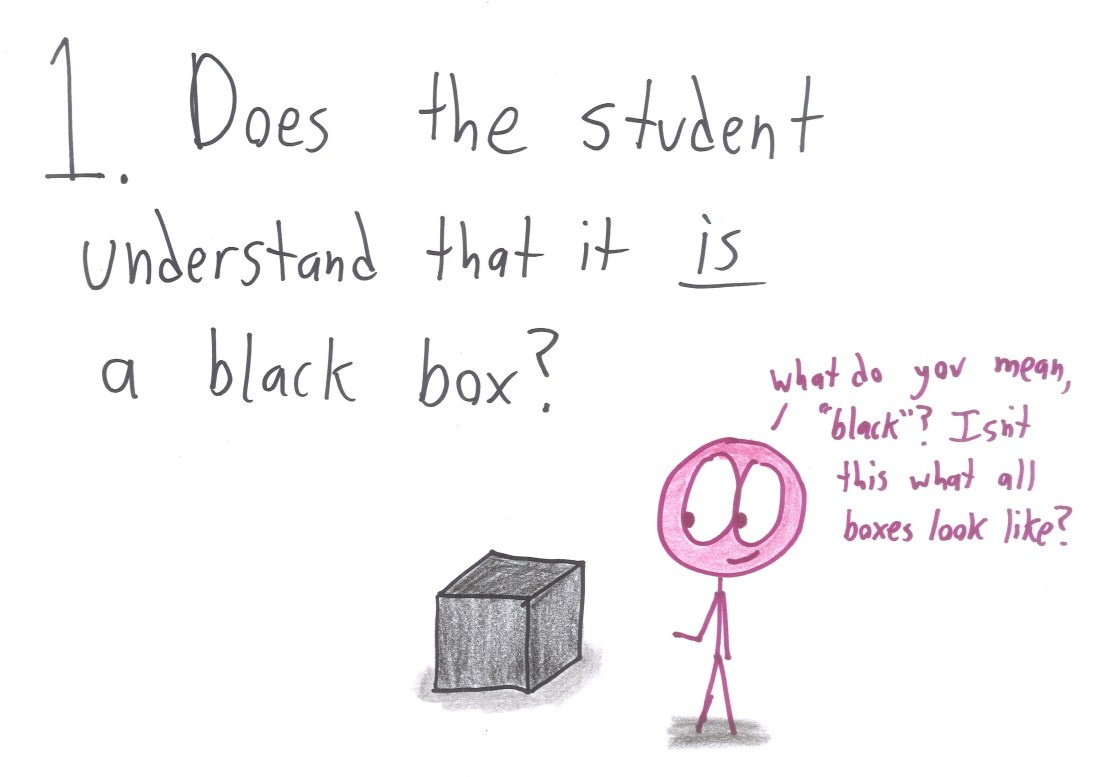 1. Does the student
understand that it is
a black box?
what do you mean,
"black"? Isn't
this what all
boxes look like?